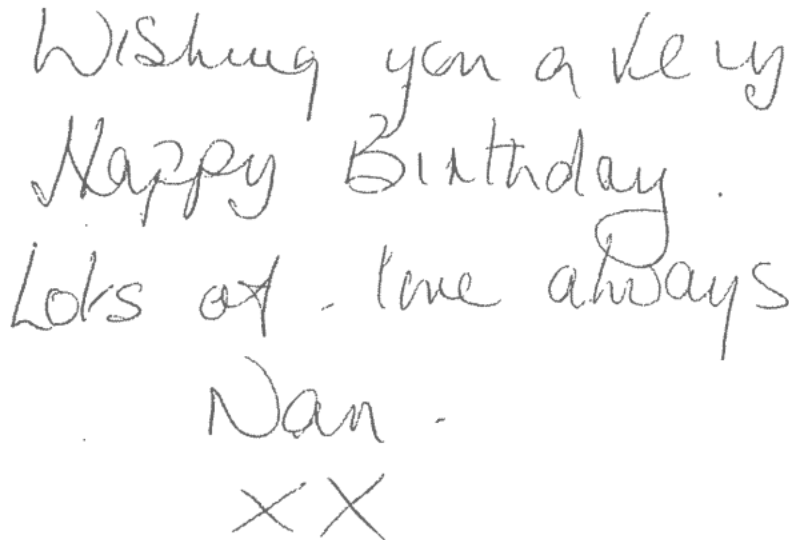 Wishing you a very
Happy Birthday.
Lots of love always
Nan.
XX